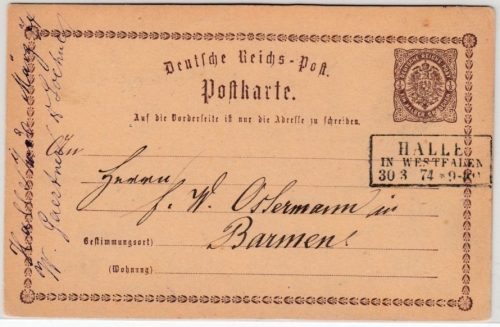 Deutsche Reichs-Post.
Postkarte.
Auf die Vorderseite ist nur die Adresse zu schreiben.
HALLE
IN WESTFALEN
30 3 74 9-10
An
Herrn
F. W. Ostermann in
Bestimmungsort) Barmen
(Wohnung)
W. Gaertner &